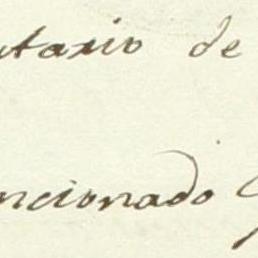 tario de
ncionado